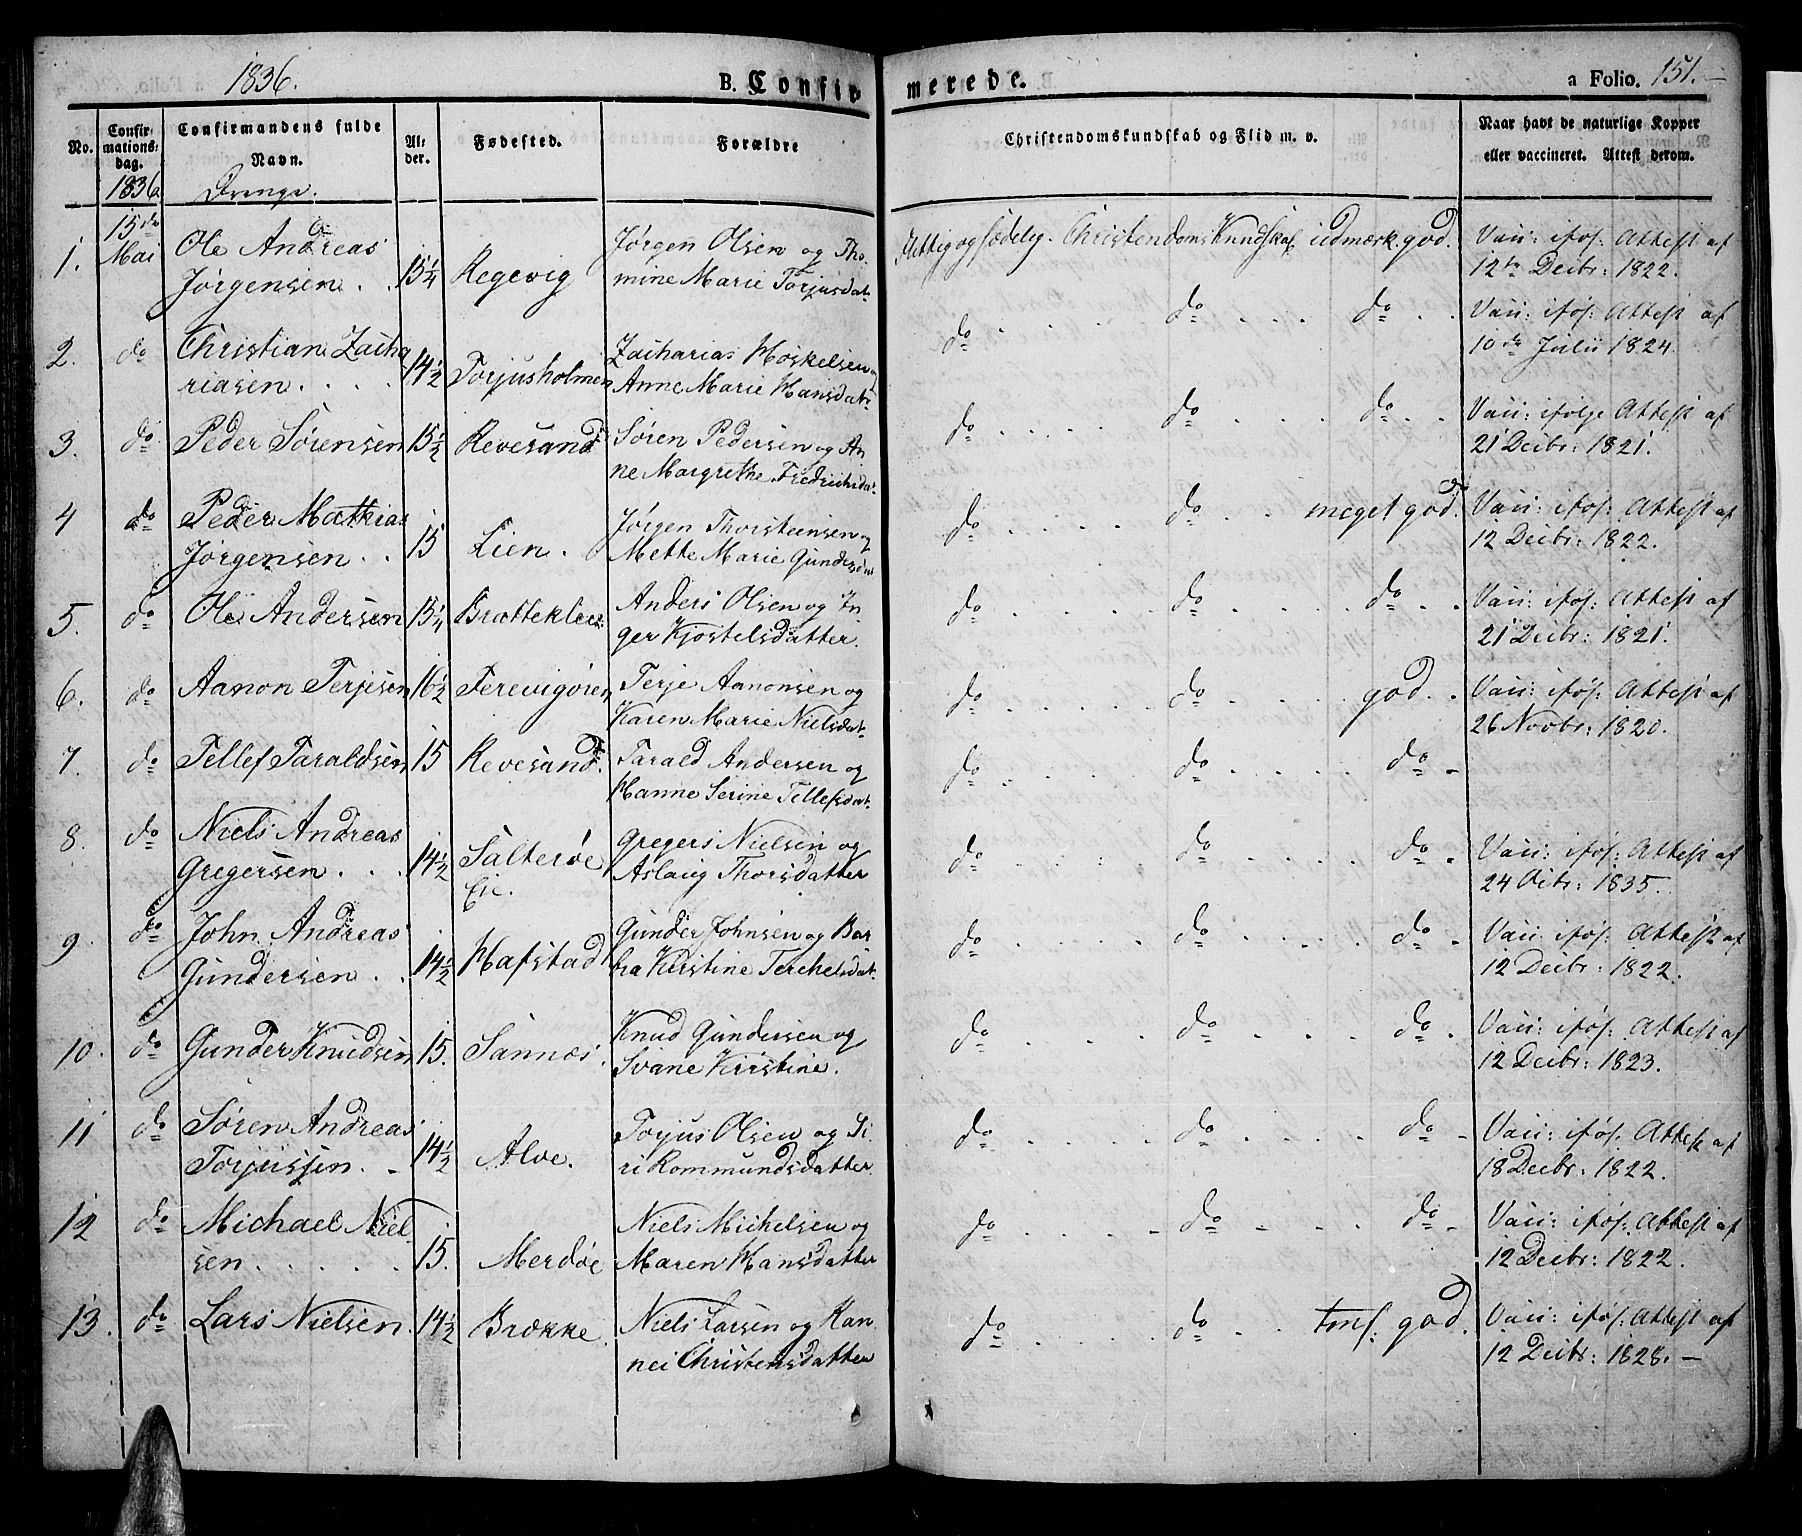 1836.
B. Confir
merede.
a Folio. 151.
No.
Confir-
mations-
dag.
Confirmandens fulde
Navn.
Al-
der.
Fødested.
Forældre
Christendomskundskab og Flid m. v.
Naar havt de naturlige Kopper
eller vaccineret. Attest derom.
1836
Drenge.
1. 15de Mai Ole Andreas
Jørgensen . . 15 1/4 Regevig Jørgen Olsen og Tho-
mine Marie Torjusdatr
flittig og sædelig. Christendoms Kundskaf. udmærk. god. Vacc: iføl: Attest af
12te Decbr: 1822.
2. do Christian Zacha
riasen . . . . 14 1/2 Torjusholmen Zacharias Hoskelsen og
Anne Marie Hansdatr
do . . . . do . . . do . . Vacc: iføl: Attest af
10de Julii 1824.
3. do Peder Sørensen 15 1/2 Revesand Søren Pedersen og An
ne Margrethe Fredrichsdatr
do . . . . do . . . do . . Vacc: ifølge Attest af
21 Decbr: 1821.
4 do Peder Mathias
Jørgensen . . 15 Lien . Jørgen Thorsteensen og
Mette Marie Gundersdat
do . . . . do . . meget god. Vacc: iføl: Attest af
12 Decbr: 1822.
5. do Ole Andersen 15 1/4 Bratteklev Anders Olsen og In-
ger Kjostelsdatter.
do . . . . do . . . do . . Vacc: iføl: Attest af
21 Decbr: 1821.
6. do Aanon Terjesen 16 1/2 Terevigøren Terje Aanonsen og
Karen Marie Nielsdatr
do . . . . do . . . god. . Vacc: iføl: Attest af
26 Novbr: 1820.
7. do Tellef Taraldsen 15 Revesand. Tarald Andersen og
Hanne Serine Tellefsdatr
do . . . . do . . . do -
8. do Niels Andreas
Gregersen . . . 14 1/2 Salterøe
Eie. Gregers Nielsen og
Aslaug Thorsdatter
do . . . : do . . . do . Vacc: iføl: Attest af
24 Octbr: 1835.
9. do John Andreas
Gundersen . . 14 1/2 Hafstad Gunder Johnsen og Bar
bra Kirstine Terchelsdatr
do . . . . do . . . do . Vacc: iføl: Attest af
12 Decbr: 1822.
10. do Gunder Knudsen 15. Sannæs. Knud Gundersen og
Svane Kirstine.
do . . . . do . . . do . Vacc: iføl: Attest af
12 Decbr: 1823.
11 do Søren Andreas
Torjussen. . 14 1/2 Alve. Torjus Olsen og Si-
ri Rommundsdatter
do . . . . do . . . do - Vacc: iføl: Attest af
18 Decbr: 1822.
12 do Michael Niel
sen . . . . . 15. Merdøe Niels Michelsen og
Maren Hansdatter
do . . . . - do - . . do - Vacc: iføl: Attest af
12 Decbr: 1822.
13. do Lars Nielsen. 14 1/2 Brække Niels Larsen og Kan-
nei Christensdatter
do . . . . do . . god. Vacc: iføl: Attest af
12 Decbr: 1828. -